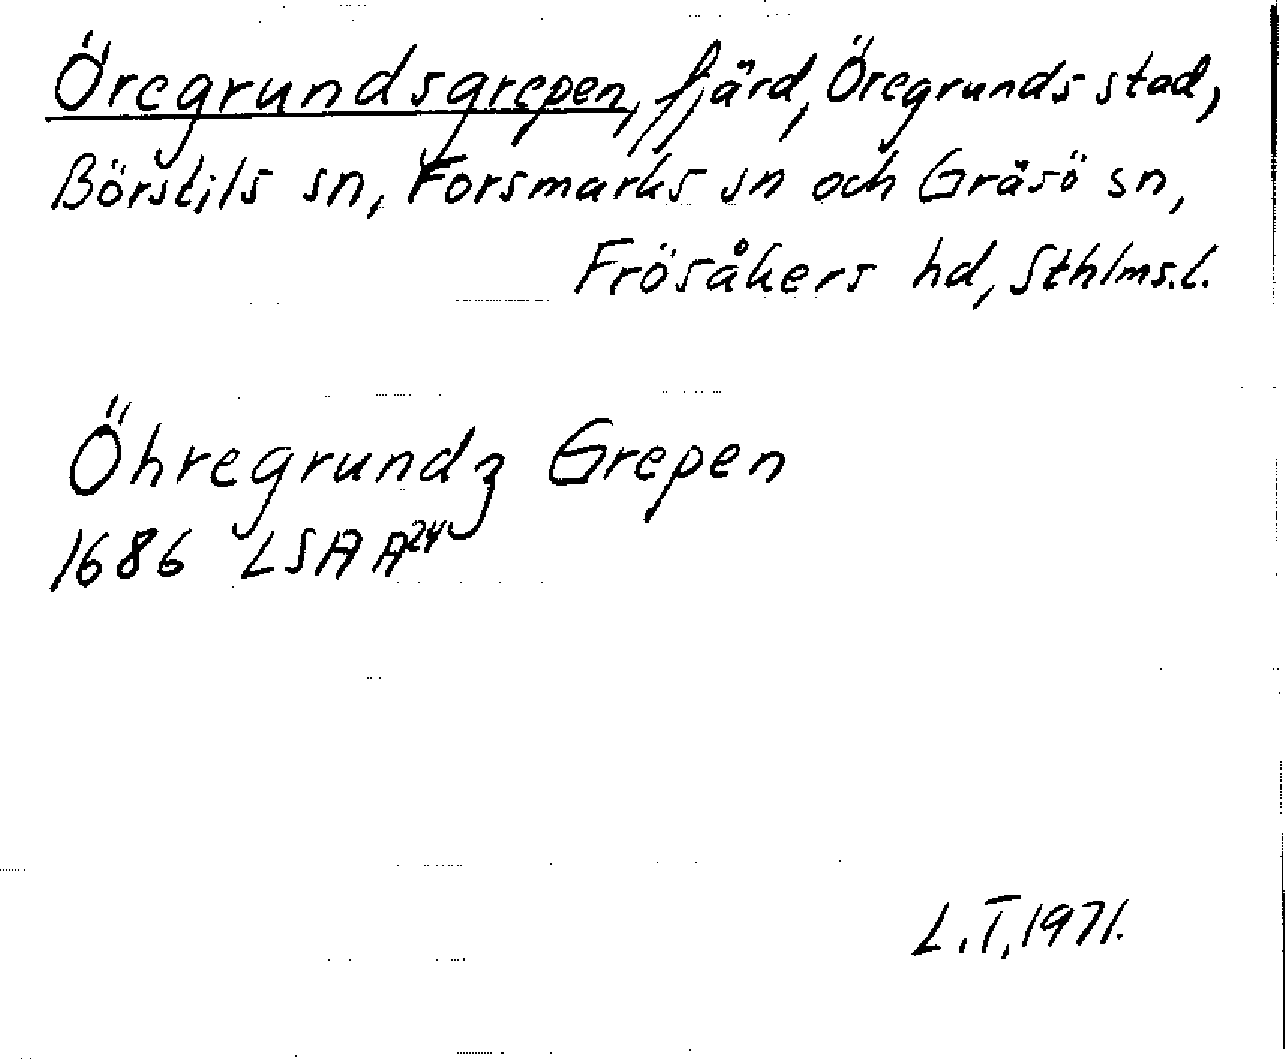 Öregrundsgrepen, fjärd, Öregrunds stad,
Börstils sn, Forsmarks sn och Gräsö sn,
Frösåkers hd, Sthlms.l.
Öhregrundz Grepen
1686 LSA A24
L.T. 1971.